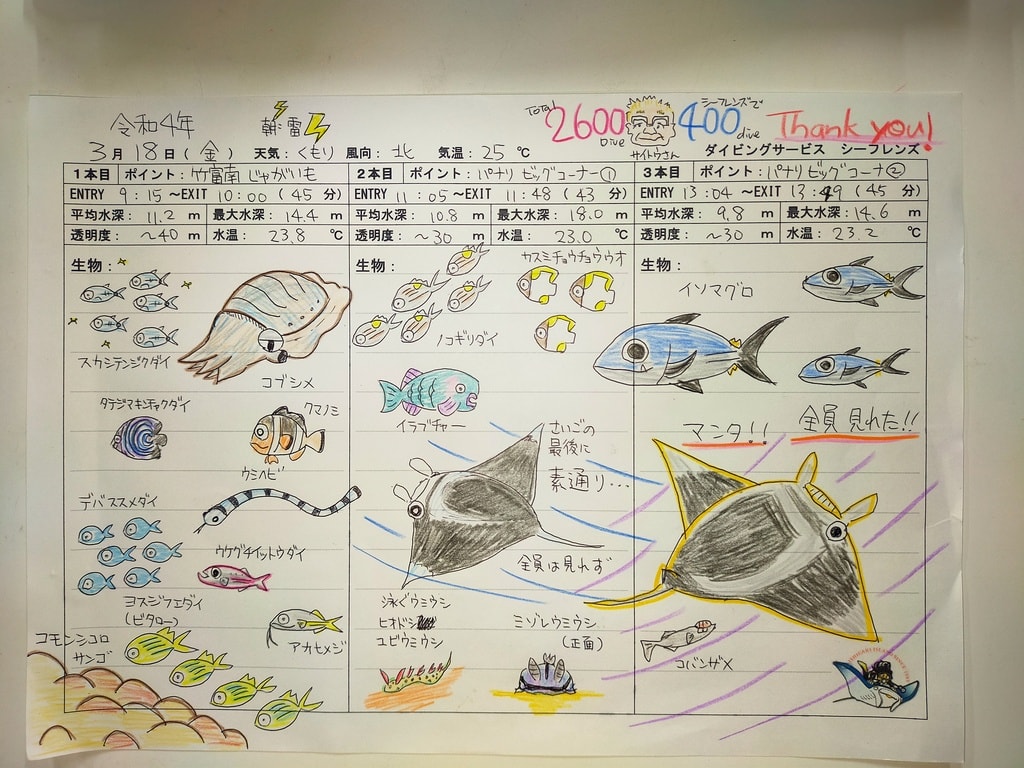 Total 2600 Dive
サイトウさん
シーフレンズで 400 dive
Thank you!
令和4年
朝: 雷
3月18日(金) 天気:くもり 風向:北 気温:25℃
ダイビングサービス シーフレンズ
1本目 ポイント:竹富南 じゃがいも
ENTRY 9:15~EXIT 10:00(45分)
平均水深:11.2m 最大水深:14.4m
透明度:~40m 水温:23.8℃
生物:
スカシテンジクダイ
コブシメ
タテジマキンチャクダイ
クマノミ
ウミヘビ
デバスズメダイ
ウケグチイットウダイ
ヨスジフエダイ
(ビタロー)
アカヒメジ
コモンシコロ
サンゴ
2本目 ポイント:パナリ ビッグコーナー①
ENTRY 11:05~EXIT 11:48(43分)
平均水深:10.8m 最大水深:18.0m
透明度:~30m 水温:23.0℃
生物:
カスミチョウチョウウオ
ノコギリダイ
イラブチャー
さいごの
最後に
素通り...
全員は見れず
泳ぐウミウシ
ヒオドシ
ユビウミウシ
ミゾレウミウシ
(正面)
3本目 ポイント:パナリ ビッグコーナ②
ENTRY 13:04~EXIT 13:49(45分)
平均水深:9.8m 最大水深:14.6m
透明度:~30m 水温:23.2℃
生物:
イソマグロ
マンタ!!
全員見れた!!
コバンザメ